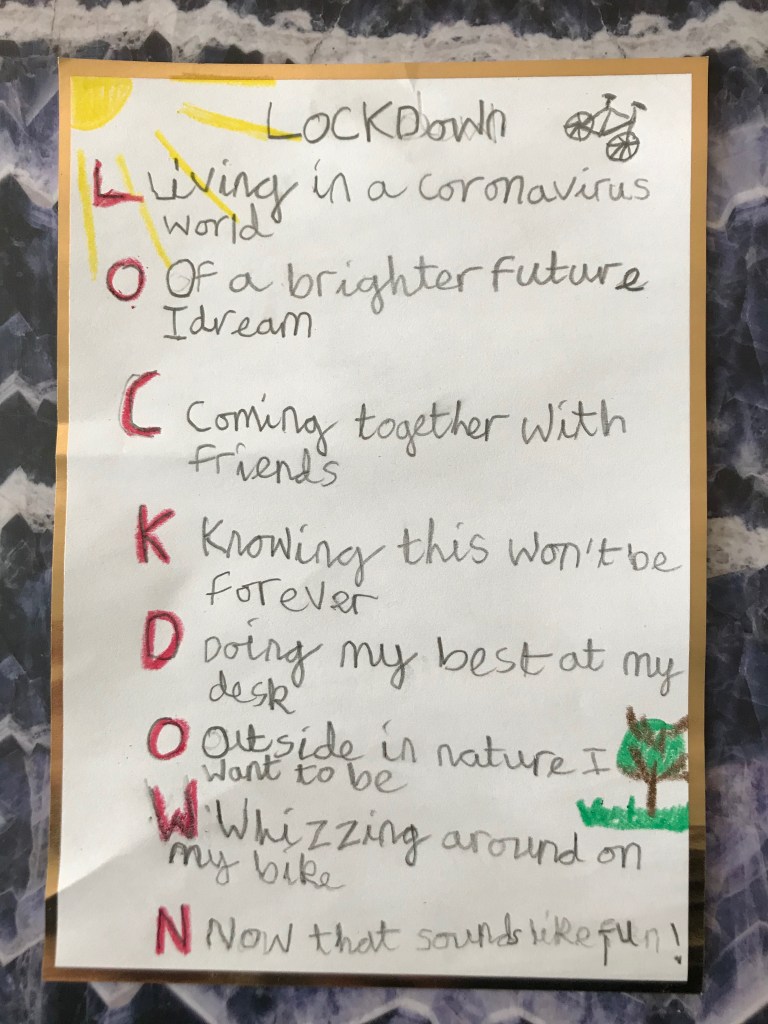 LOCKDown
L Living in a coronavirus
world
O Of a brighter future
I dream
C Coming together with
friends
K Knowing this won't be
forever
D Doing my best at my
desk
O Outside in nature I
want to be
W Whizzing around on
my bike
N Now that sounds like fun!